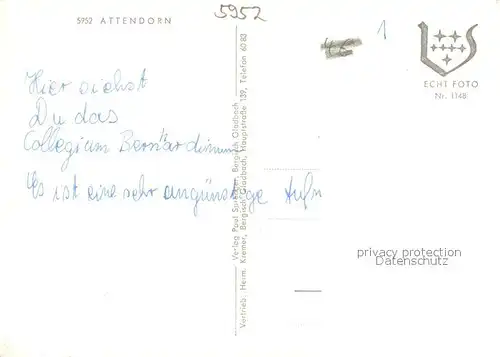 5952 ATTENDORN
5952
1
ECHT FOTO
Nr. 1148
Hier siehst
Du das
Collegium Bernardinum
Es ist eine sehr ungünstige
Verlag Paul Bergisch Gladbach
Vertrieb: Herm. Kremer, Bergisch Gladbach, Hauptstraße 139, Telefon 60 83
privacy protection
Datenschutz